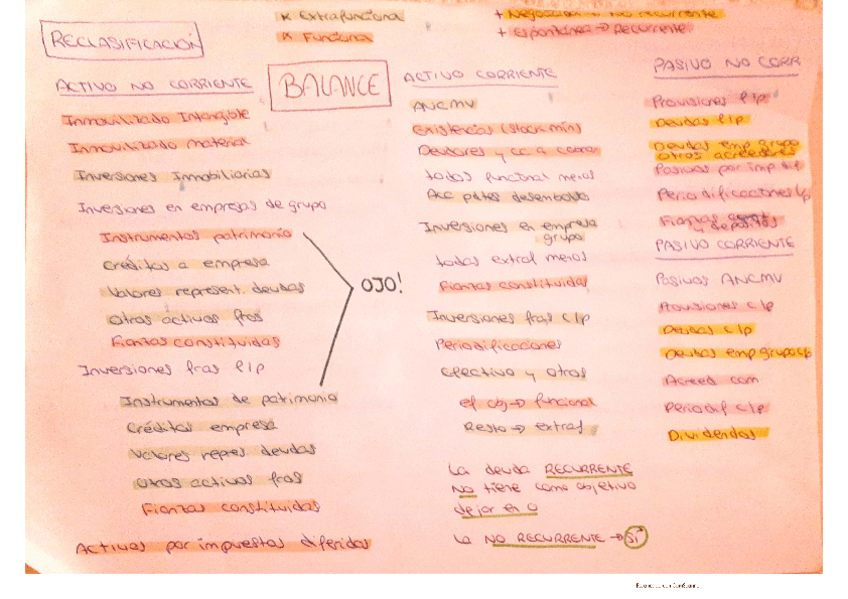 * Extrafuncional
* Funcional
+ Negociada → No recurrente
+ Espontánea → Recurrente
RECLASIFICACIÓN
BALANCE
ACTIVO NO CORRIENTE
Inmovilizado Intangible
Inmovilizado material
Inversiones Inmobiliarias
Inversiones en empresas de grupo
Instrumentos patrimonio
Créditos a empresa
Valores represent. deudas
Otros activos fros
Fianzas constituidas
OJO!
Inversiones fras l/p
Instrumentos de patrimonio
Créditos empresa
Valores repres. deudas
Otros activos fros
Fianzas constituidas
Activos por impuestos diferidos
ACTIVO CORRIENTE
ANCMV
Existencias (stock mín)
Deudores y cc a cobrar
todas funcional menos
Acc pdtes desembolso
Inversiones en empresa
grupo
todas extraf menos
Fianzas constituidas
Inversiones fras c/p
Periodificaciones
Efectivo y otros
ef obj → funcional
Resto → extraf
La deuda RECURRENTE
NO tiene como objetivo
dejar en 0
La NO RECURRENTE → SÍ
PASIVO NO CORR
Provisiones l/p
Deudas l/p
Deudas emp grupo
otros acreedores
Pasivos por imp dif
Periodificaciones l/p
Fianzas
y depósitos
PASIVO CORRIENTE
Pasivos ANCMV
Provisiones c/p
Deudas c/p
Deudas emp grupo c/p
Acreed com
Periodif c/p
Dividendos